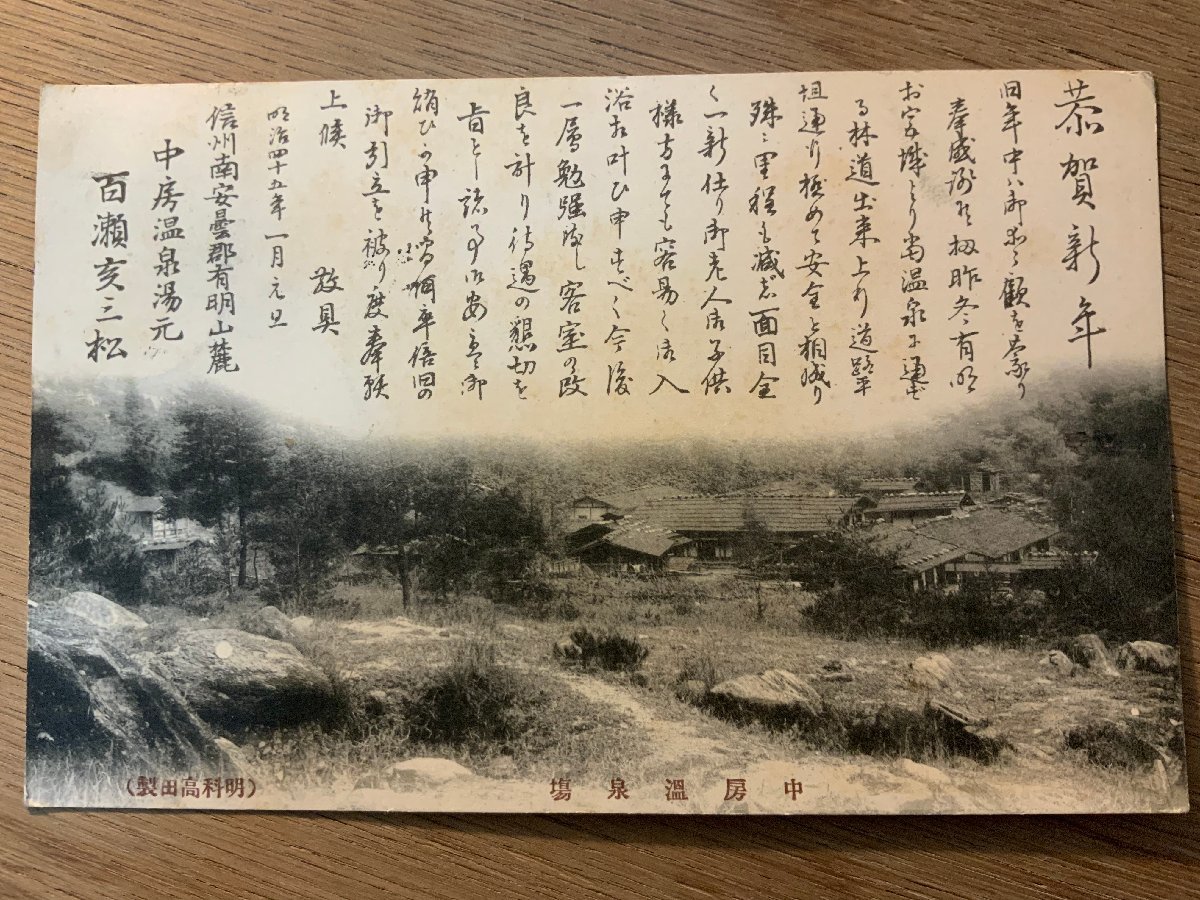 恭賀新年
旧年中ハ御引立観を蒙り
奉感謝候扨昨冬有明
お宮城より当温泉に通ず
る林道出来上り道路平
坦通り極めて安全と相成り
殊ニ里程も減じ面目全
く一新仕り御老人御子供
様方までも容易く御入
浴相叶ひ申すべく今後
一層勉強致し客室の改
良を計り待遇の懇切を
旨とし諸事御安直に御
賄ひ可申候間何卒倍旧の
御引立を被り度奉願
上候 敬具
明治四十五年一月元旦
信州南安曇郡有明山麓
中房温泉湯元
百瀬亥三松
中房溫泉塲
(明科高田製)